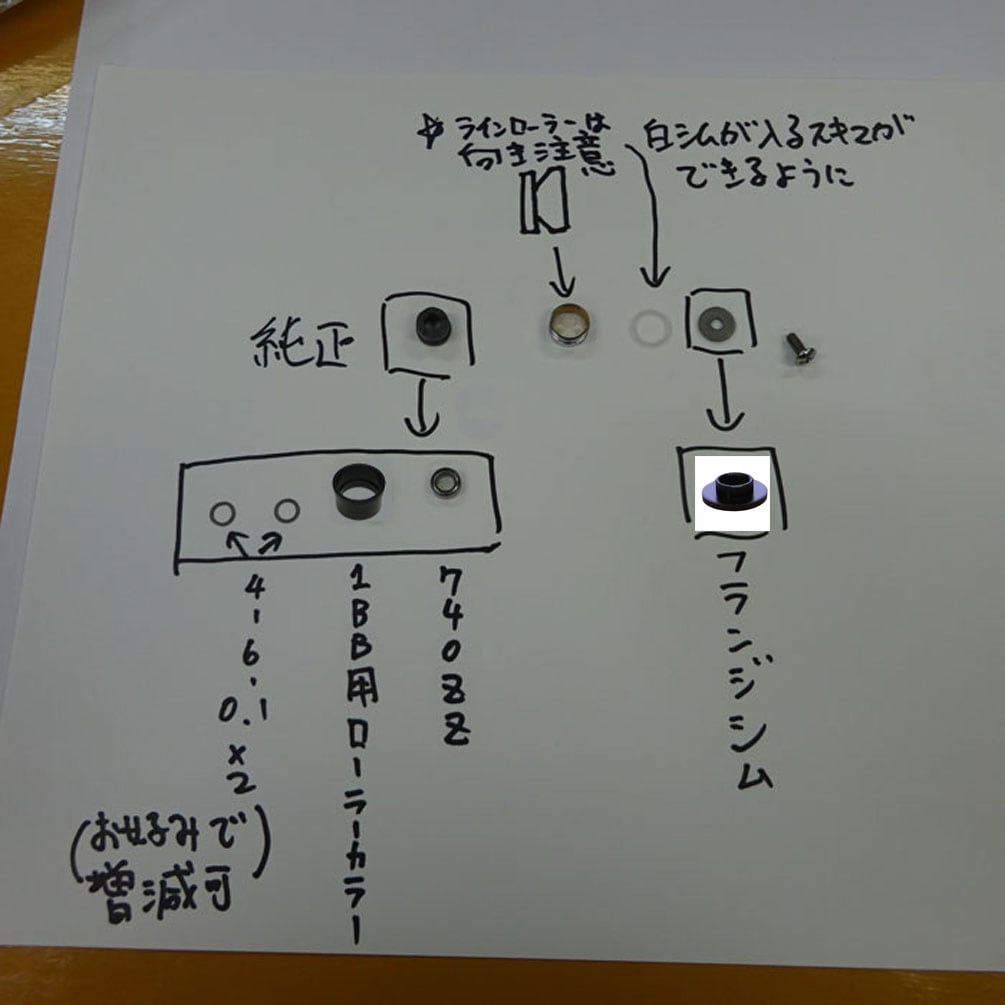 ☆ラインローラーは
向き注意
白シムが入るスキマが
できるように
純正
4-6-0.1×2
(お好みで
増減可)
1BB用ローラーカラー
740ZZ
フランジシム